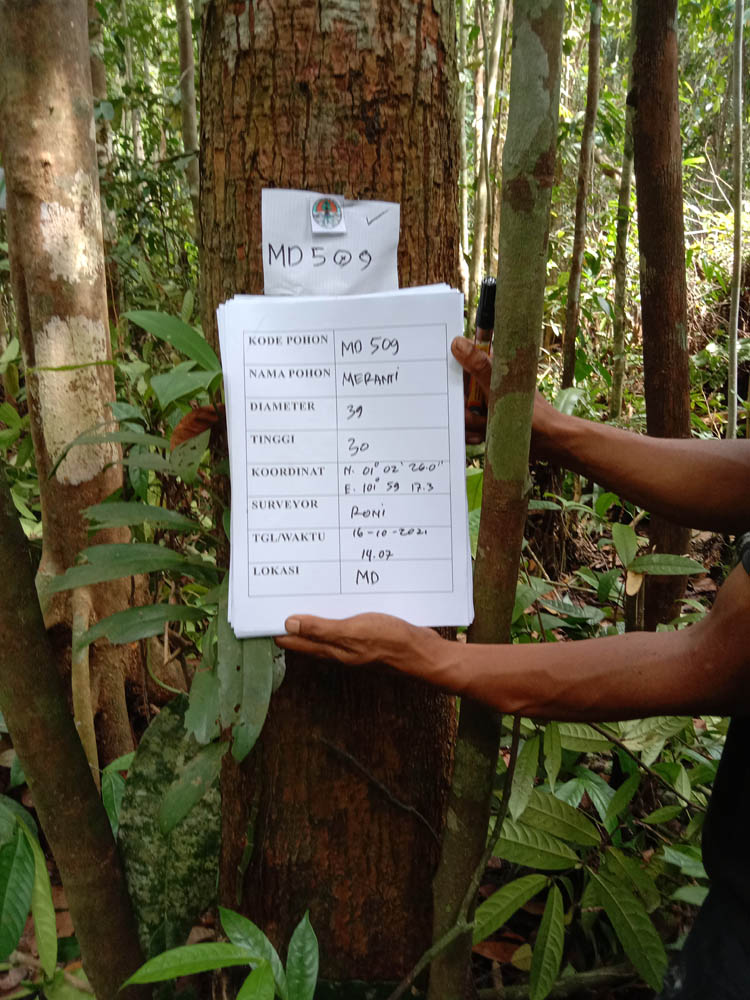 MD509
KODE POHON MD 509
NAMA POHON MERANTI
DIAMETER 39
TINGGI 30
KOORDINAT N. 01° 02' 26.0"
E. 101° 59 17.3
SURVEYOR RONI
TGL/WAKTU 16-10-2021
14.07
LOKASI MD